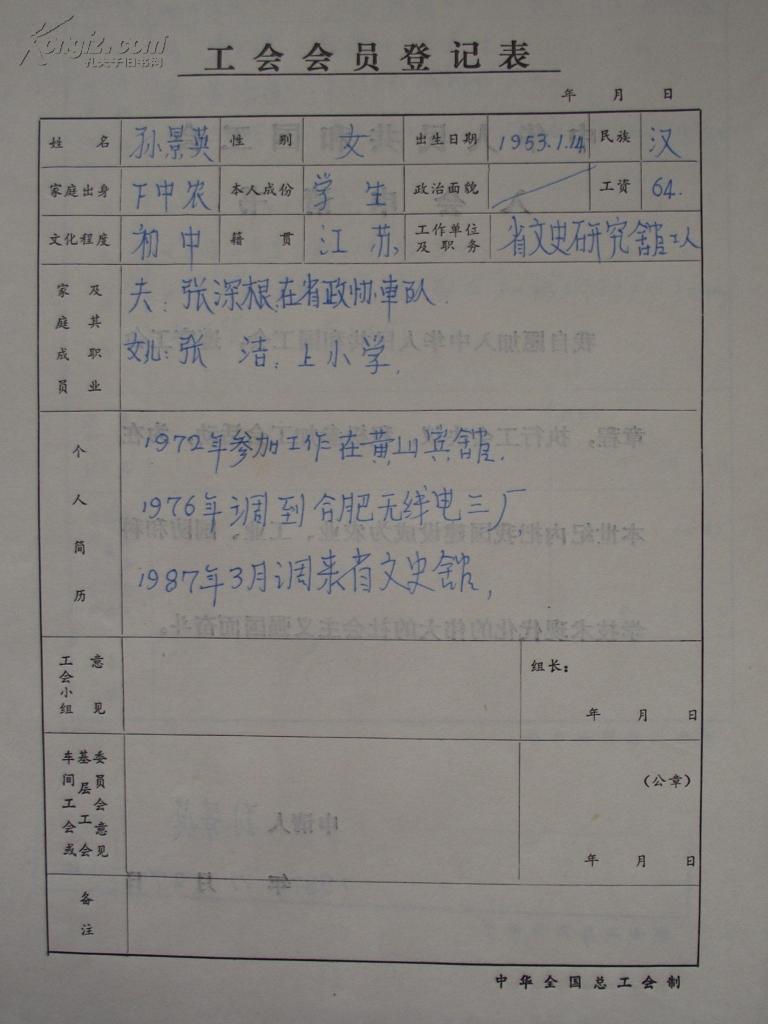 Kongfz.com
孔夫子旧书网
工会会员登记表
年 月 日
姓名 孙景英 性别 女 出生日期 1953.1.14 民族 汉
家庭出身 下中农 本人成份 学生 政治面貌 工资 64.
文化程度 初中 籍贯 江苏 工作单位及职务 省文史研究舘工人
家庭成员及其职业
夫：张深根,在省政协車队.
女儿：张洁：上小学.
个人简历
1972年参加工作在黄山宾舘.
1976年调到合肥无线电三厂
1987年3月调来省文史舘,
工会小组意见
组长：
年 月 日
车间工会或基层工会委员会意见
（公章）
年 月 日
备注
中华全国总工会制